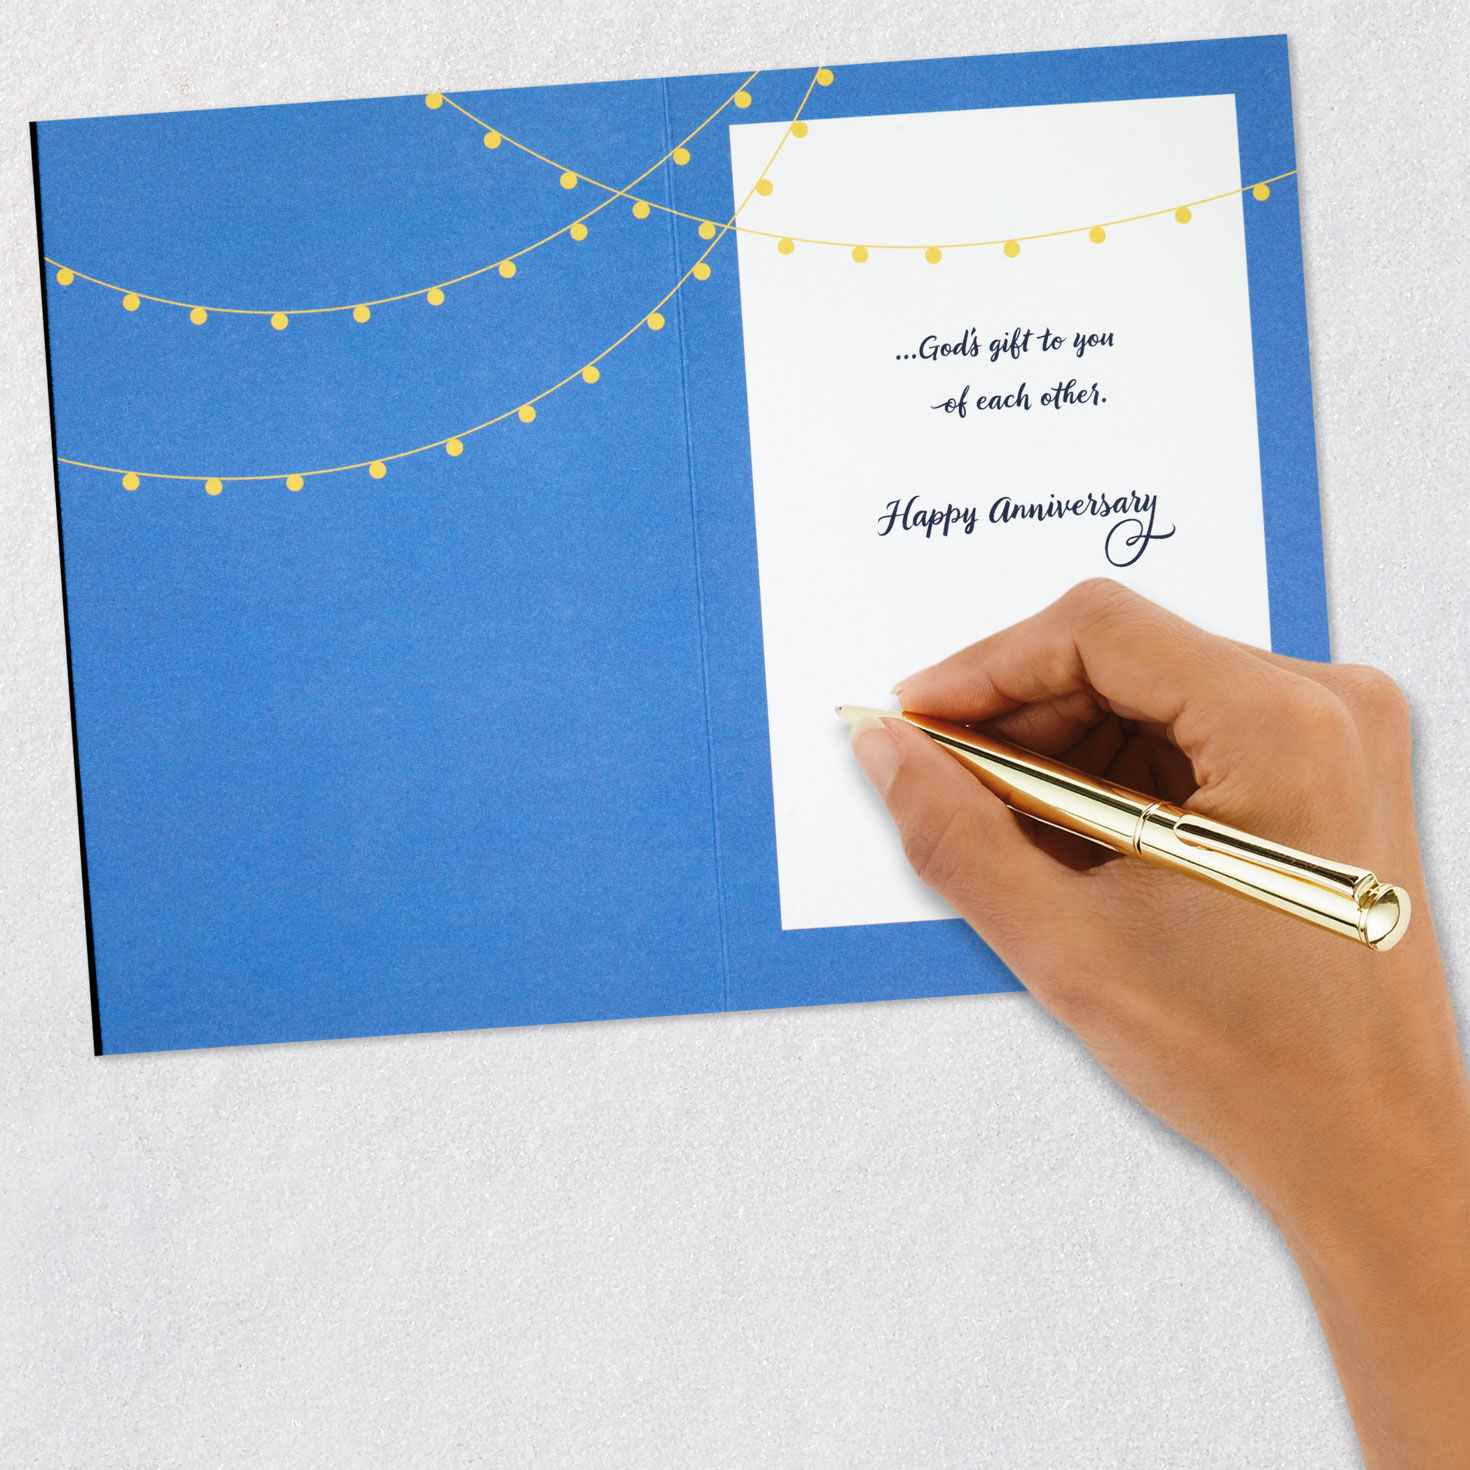 ...God's gift to you
of each other.
Happy Anniversary